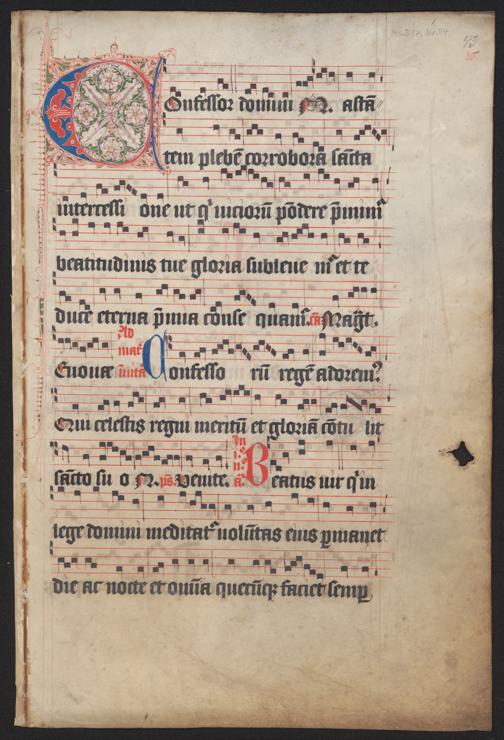 Ms. D. 37, Nr. 54
43
Confessor domini N. astā
tem plebē corroborā sācta
intercessi one ut q' uiciorū pōdere p̄mim'
beatitudinis tue gloria subleue m' et te
duce eterna p̄mia cōnse quam'. cā Magt̄.
Euouae Ad mat' inuita Confesso rū regē adorem'.
Qui celestis regni meritū et gloriā cōtu lit
sācto su o N. ps. Venite. In i. no. a. Beatus uir q' in
lege domini meditat' uolūtas eius p̄manet
die ac nocte et omīa quecūqꝫ faciet semp̄